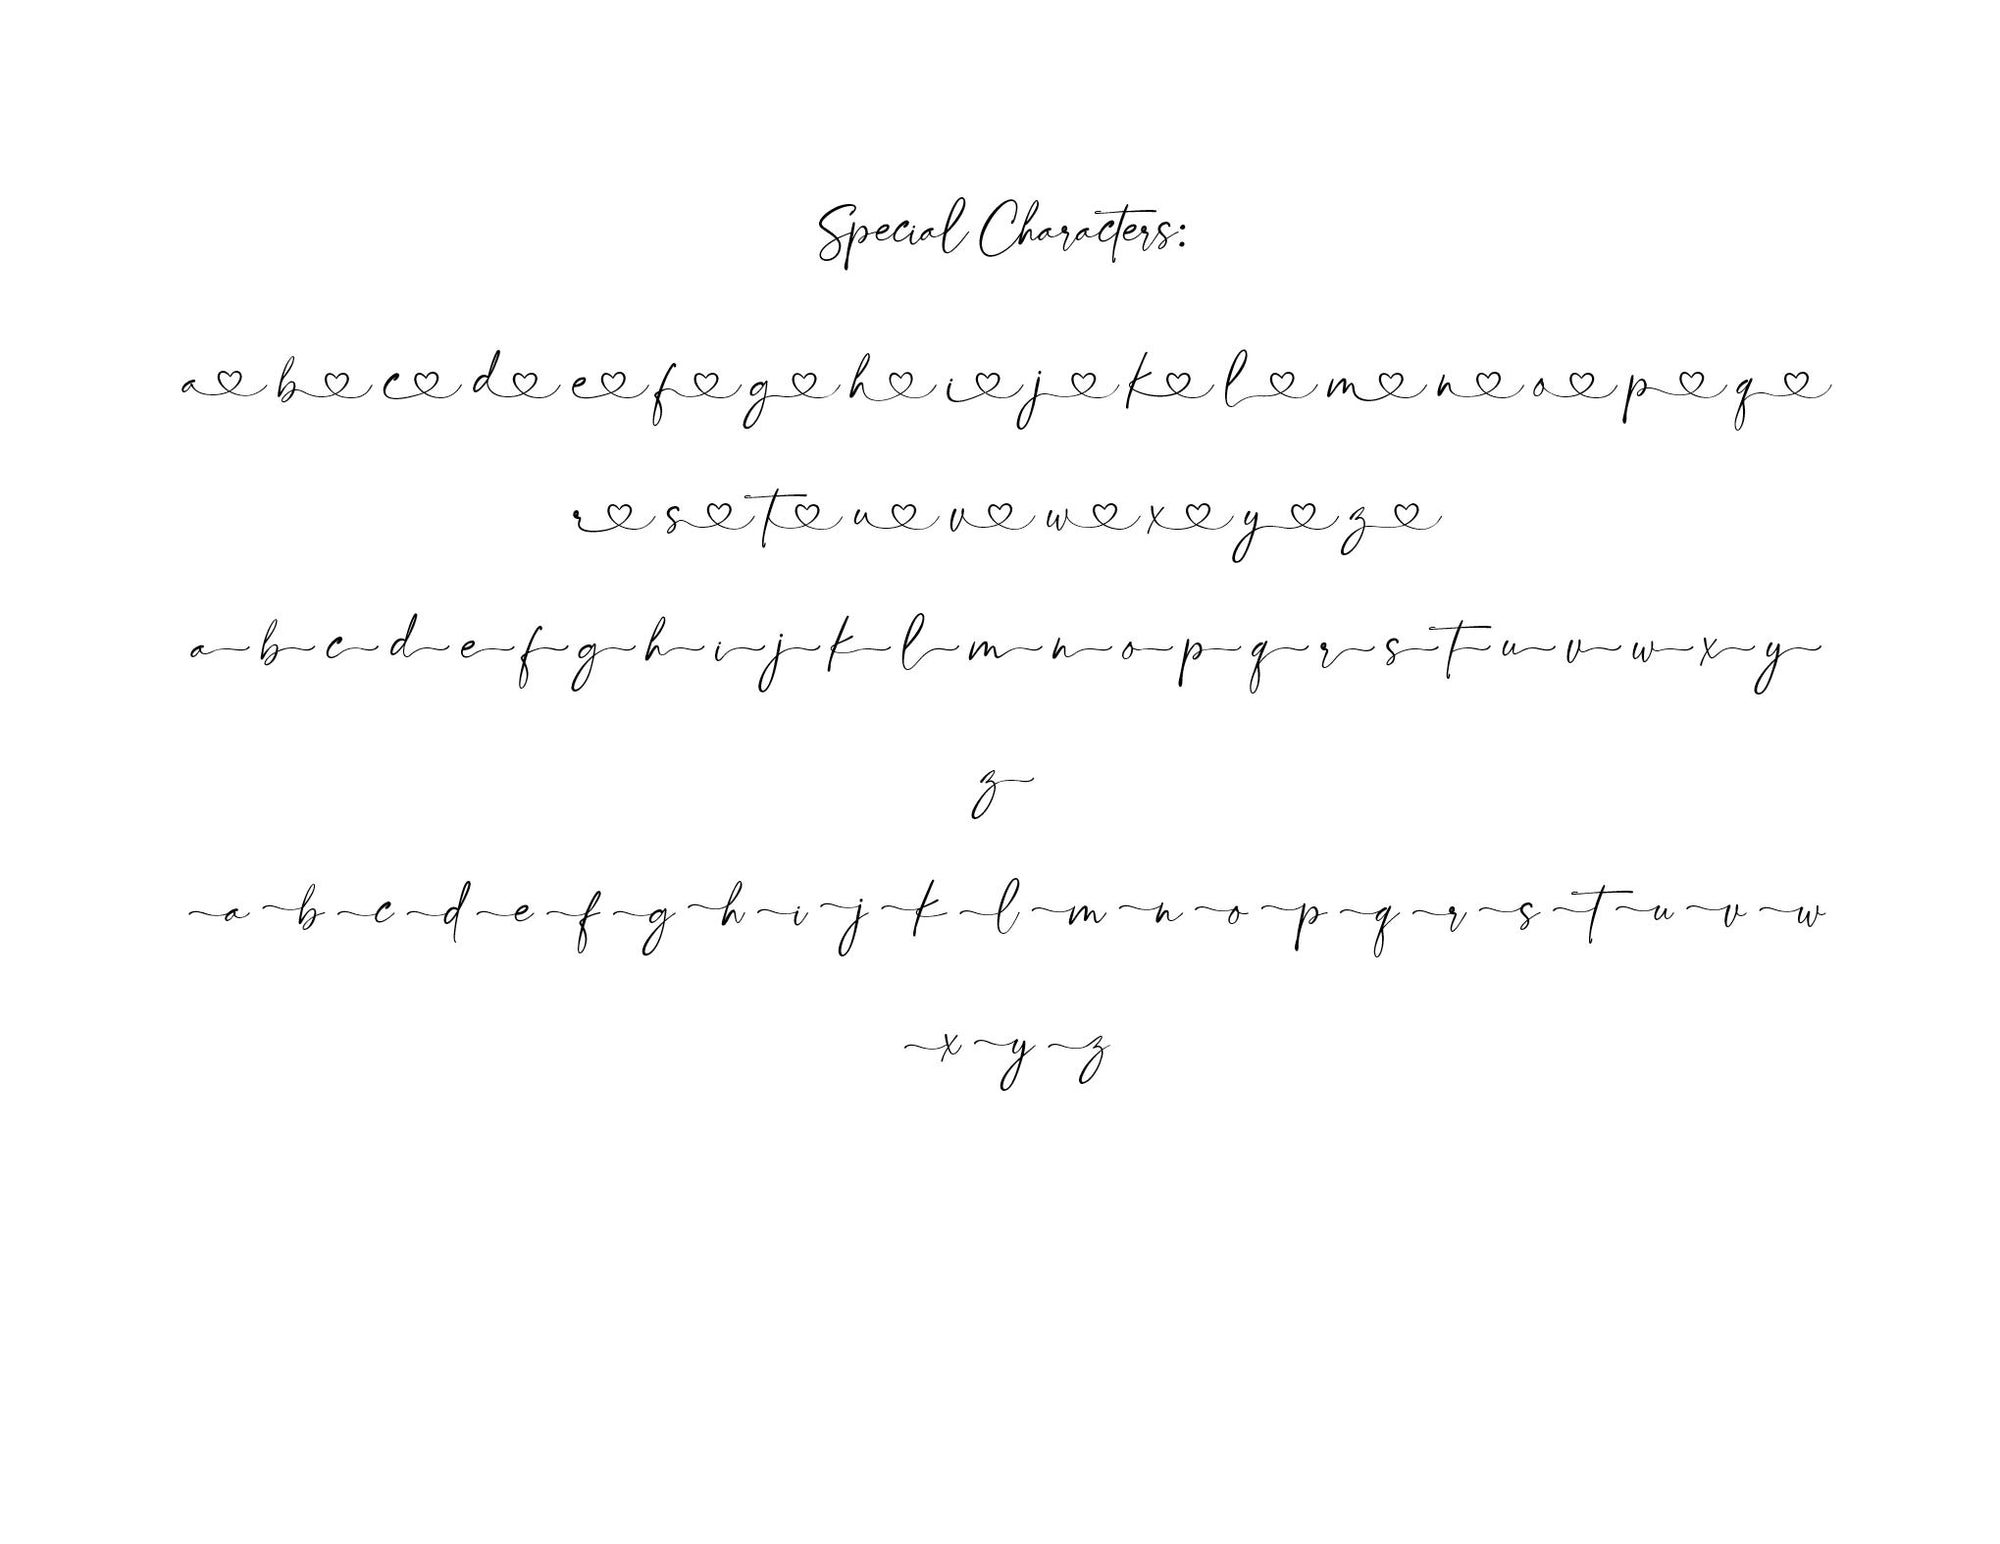 Special Characters:
a♡b♡c♡d♡e♡f♡g♡h♡i♡j♡k♡l♡m♡n♡o♡p♡q♡
r♡s♡t♡u♡v♡w♡x♡y♡z♡
a b c d e f g h i j k l m n o p q r s t u v w x y
z
a b c d e f g h i j k l m n o p q r s t u v w
x y z